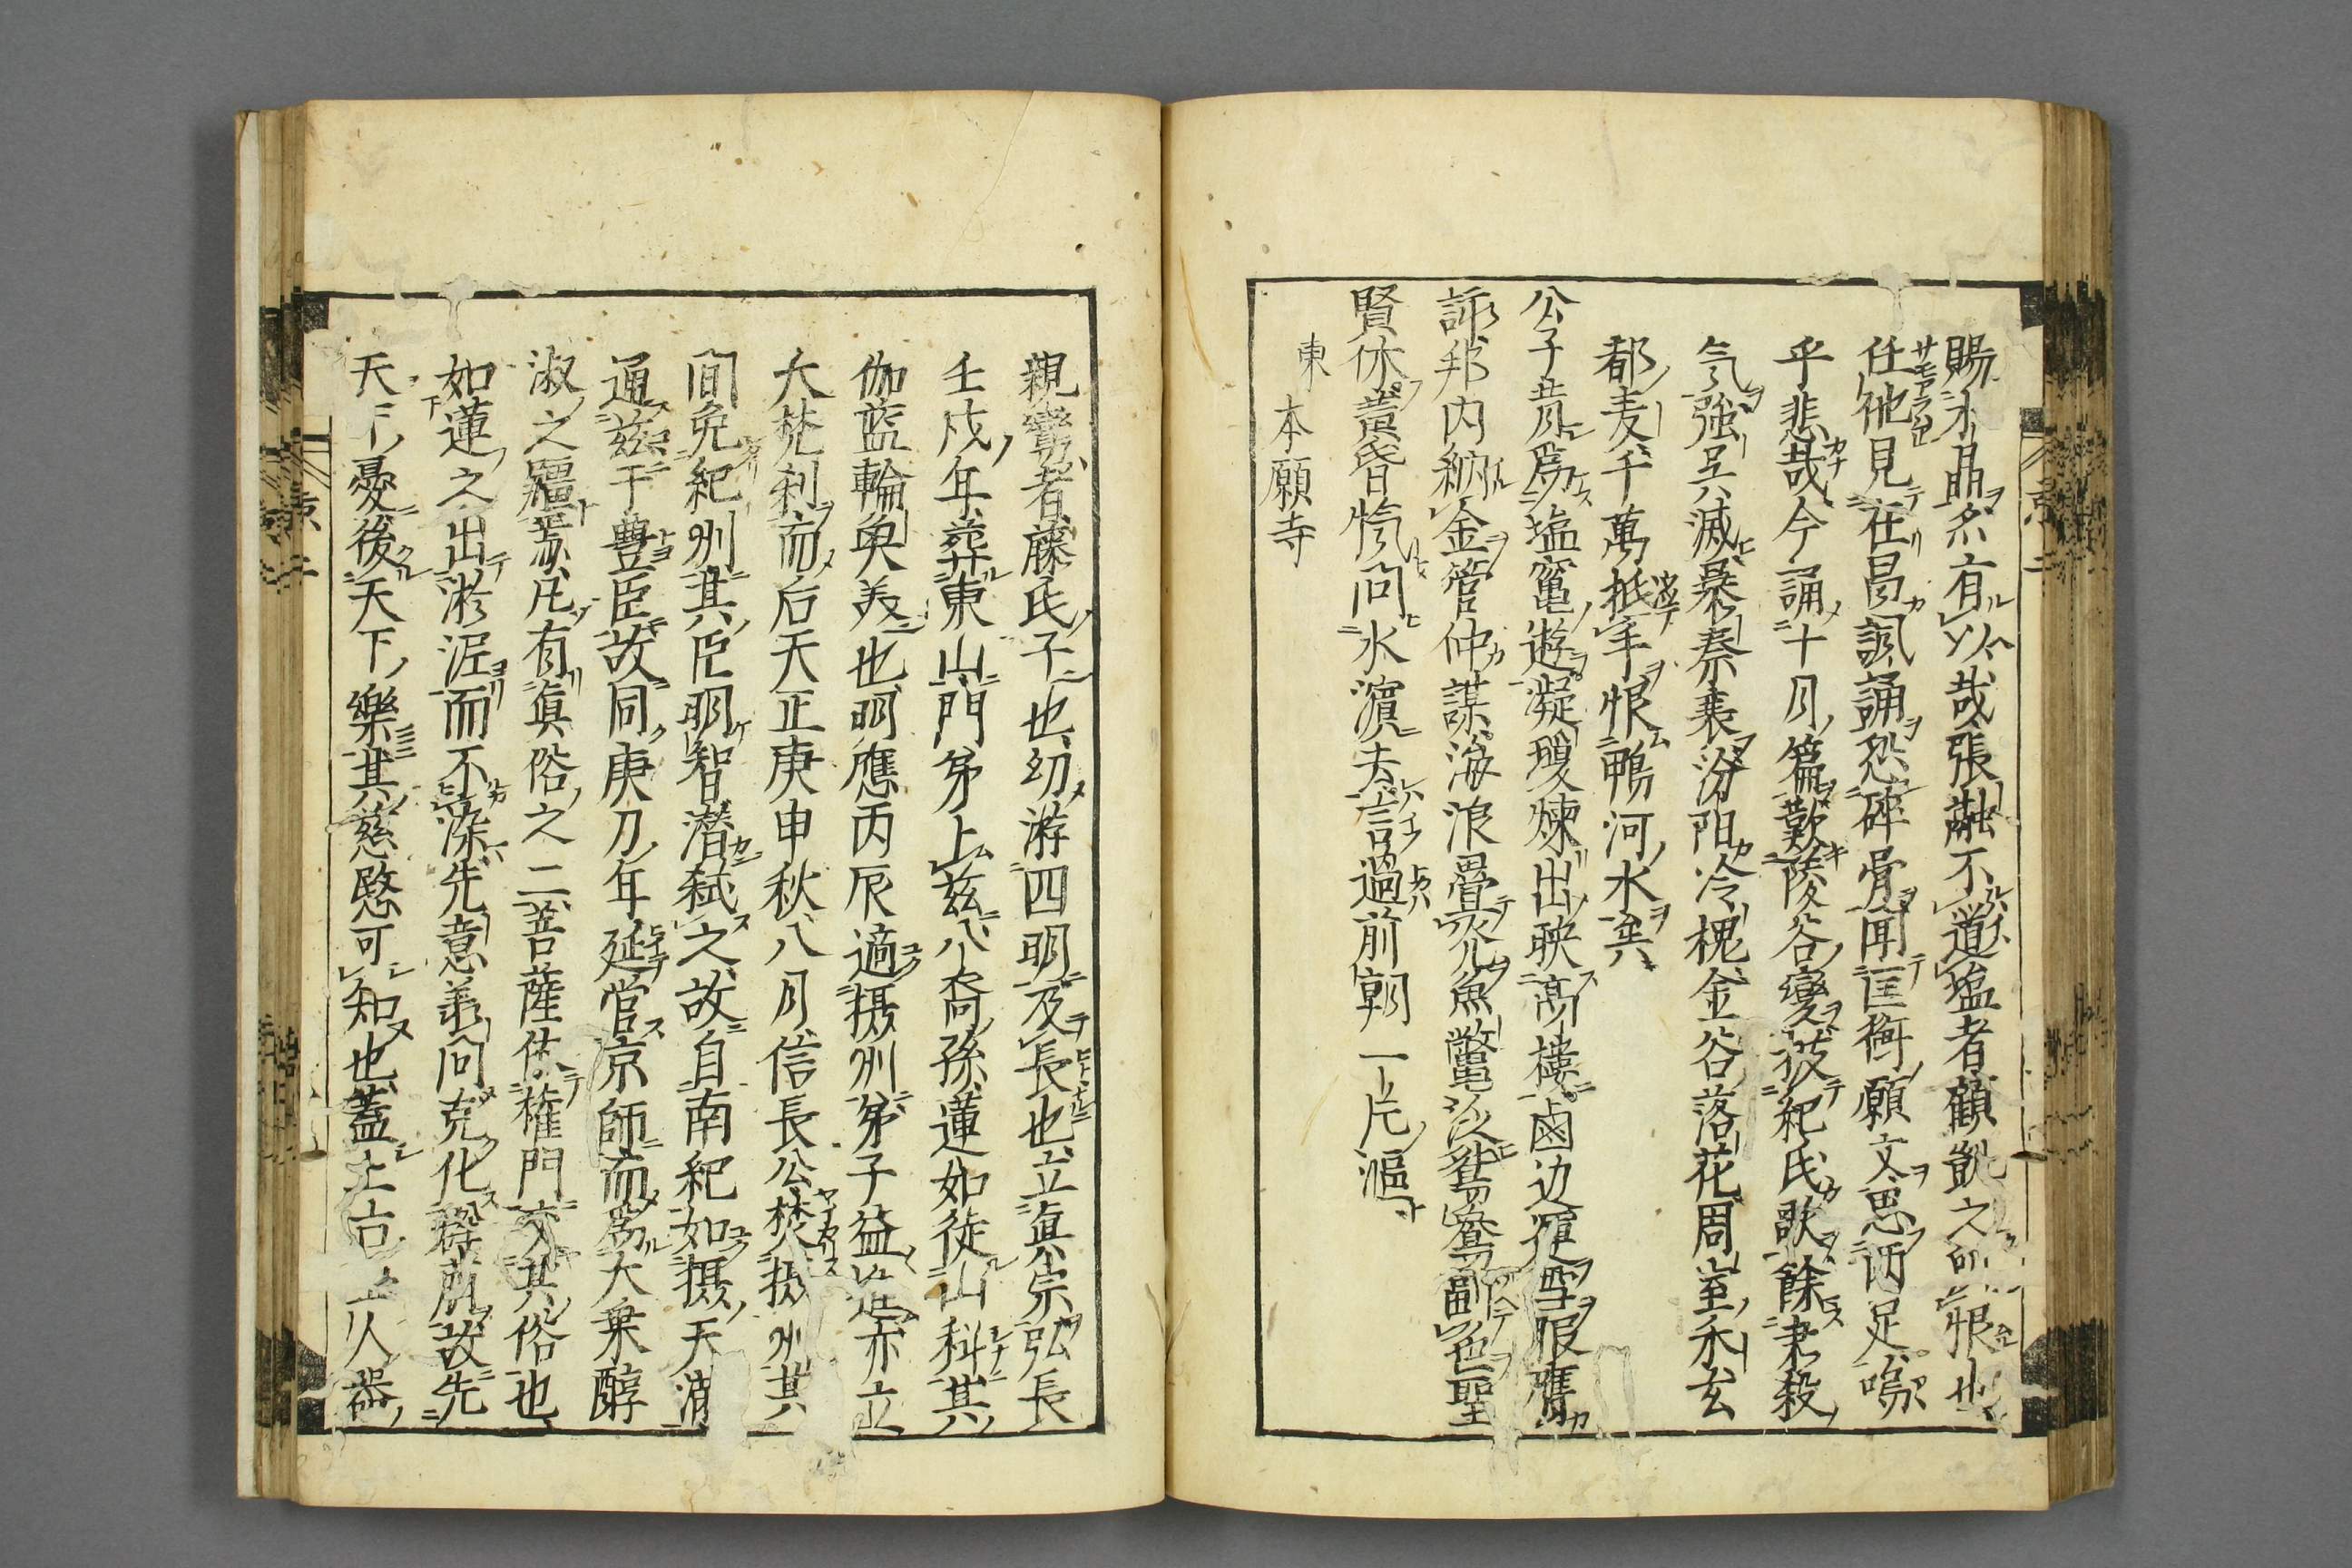 賜水晶亦有以哉張融不道塩者顧凱之所恨也
任他見在昌諷誦怨碎骨聞匡衡願文思洒足嗚
乎悲哉今誦十月篇歎陵谷變披紀氏歌餘未殺
気強呉滅暴秦衰汾阳冷槐金谷落花周室禾玄
都麦千萬抵手恨鴨河水矣
公子昔爲塩竃遊凝瓊煉出映高樓鹵边復雪服鷹
訴邦内納金管仲謀海浪疊冗魚鱉沙鴛鴦副邑聖
賢休黄昏愾問水濵去言過前朝一片漚
東
本願寺
親鸞者藤氏子也幼游四明及長也立眞宗弘長
壬戌年葬東山門弟上兹八裔孫蓮如徙山科其
伽藍輪奐美也明應丙辰適摂州弟子益造亦立
大梵刹而后天正庚申秋八月信長公焚摂州其
間免紀州其臣明智潜弑之故自南紀如摂天消
通兹于豊臣故同庚刀年延営京師而爲大乗醇
淑之疆焉凡有眞俗之二菩薩依権門交其俗也
如蓮之出淤泥而不染先意善問克化群萠故先
天下憂後天下樂其慈愍可知也蓋 人器